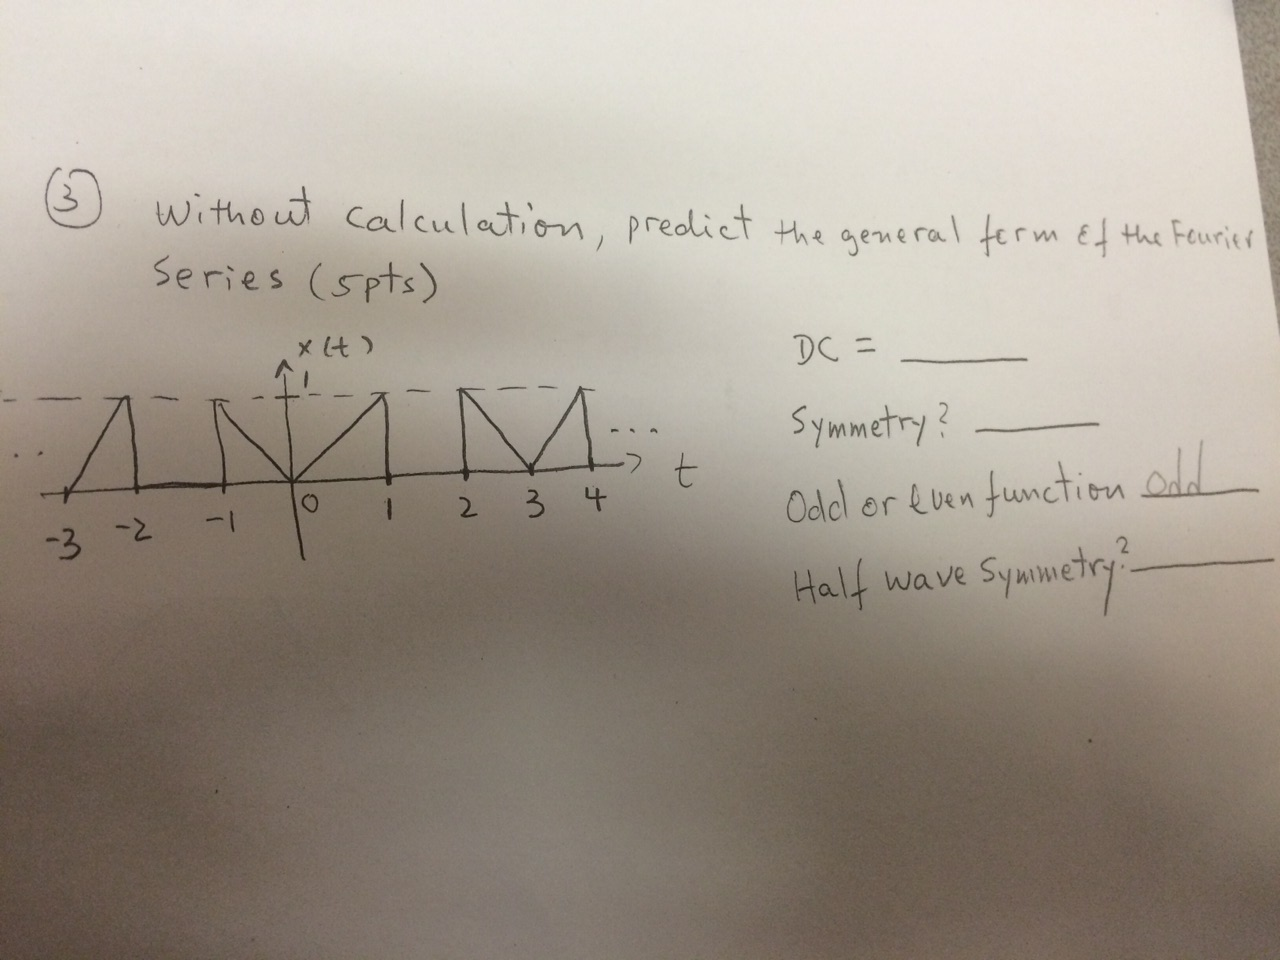 ③ Without calculation, predict the general form of the Fourier
Series (5pts)
x(t)
1
DC = ______
Symmetry? ______
Odd or Even function odd
Half wave Symmetry? ______
... t
-3 -2 -1 0 1 2 3 4